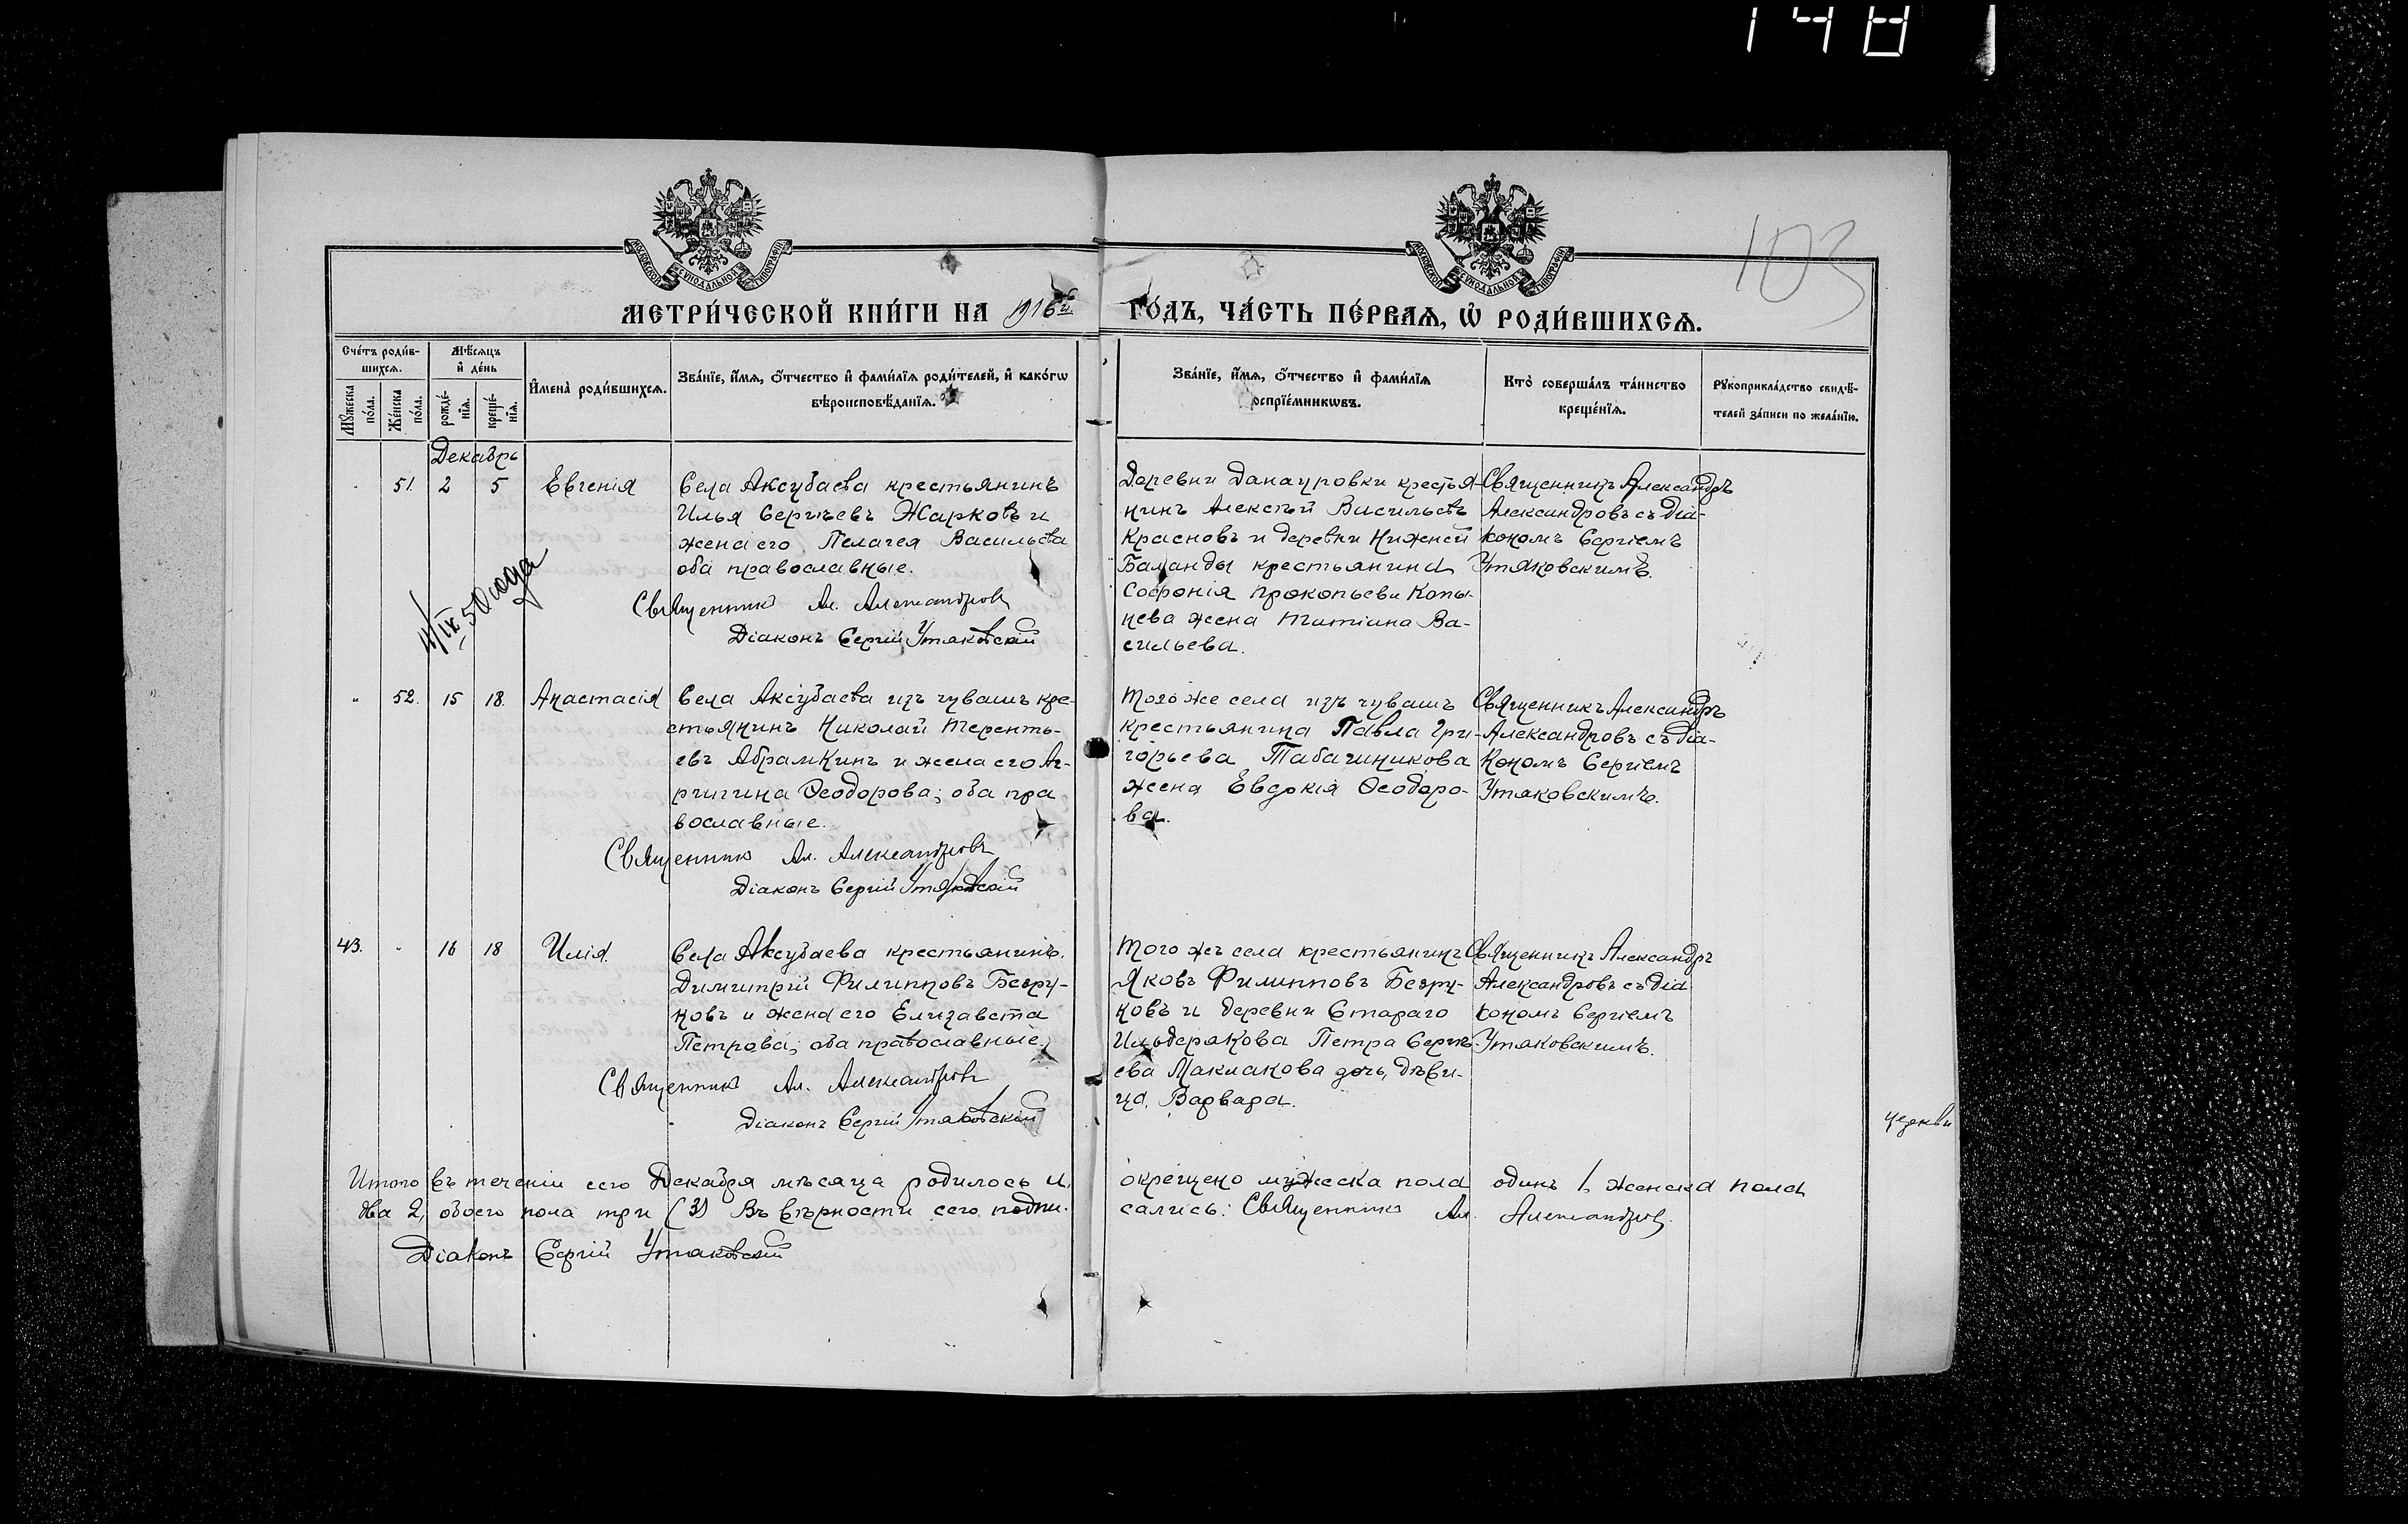 148
103
МЕТРИ́ЧЕСКОЙ КНИ́ГИ НА 1916й ГО́ДЪ, ЧА́СТЬ ПЕ́РВАѦ, Ѡ҆ РОДИ́ВШИХСѦ.
Сче́тъ роди́в-
шихсѧ.
Мꙋ́жеска
по́ла.
Же́нска
по́ла.
Мѣ́сѧцъ
и҆ де́нь
рожде́-
нїѧ.
креще́-
нїѧ.
И҆мена̀ роди́вшихсѧ.
Зва́нїе, и҆́мѧ, ѻ҆́тчество и҆ фами́лїѧ роди́телей, и҆ како́гѡ
вѣроисповѣ́данїѧ.
Зва́нїе, и҆́мѧ, ѻ҆́тчество и҆ фами́лїѧ
оспрїе́мникѡвъ.
Кто̀ соверша́лъ та́инство
креще́нїѧ.
Рꙋкоприкла́дство свидѣ́-
телей за́писи по жела́нїю.
Декабрь
51. 2 5 Евгенія
Села Аксубаева крестьянинъ
Илья Сергѣевъ Жарковъ и
жена его Пелагея Васильева
оба православные.
Священникъ Ал. Александровъ
Діаконъ Сергій Утяковскій
IX 50 года
Деревни Данауровки крестья-
нинъ Алексѣй Васильевъ
Красновъ и деревни Нижней
Баланды крестьянина
Софронія Прокопьева Копы-
нева жена Татіана Ва-
сильева.
Священникъ Александръ
Александровъ съ діа-
кономъ Сергіемъ
Утяковскимъ.
" 52. 15 18. Анастасія
Села Аксубаева изъ чувашъ кре-
стьянинъ Николай Теренть-
евъ Абрамкинъ и жена его Аг-
рипина Ѳеодорова; оба пра
вославные.
Священникъ Ал. Александровъ
Діаконъ Сергій Утяковскій
Того же села изъ чувашъ
крестьянина Павла Гри-
горьева Табачникова
жена Евдокія Ѳеодоро-
ва.
Священникъ Александръ
Александровъ съ діа-
кономъ Сергіемъ
Утяковскимъ.
43. " 16 18 Илія.
Села Аксубаева крестьянинъ
Димитрій Филипповъ Безру-
ковъ и жена его Елизавета
Петрова; оба православные.
Священникъ Ал. Александровъ
Діаконъ Сергій Утяковскій
Того жъ села крестьянинъ
Яковъ Филипповъ Безру-
ковъ и деревни Стараго
Ильдерякова Петра Сергѣ-
ева Маклакова дочь, дѣви-
ца Варвара.
Священникъ Александръ
Александровъ съ діа
кономъ Сергіемъ
Утяковскимъ.
церкви
Итого въ теченіи сего Декабря мѣсяца родилось и окрещено мужеска пола одинъ 1, женска пола
два 2, обоего пола три (3) Въ вѣрности сего подпи-сались: Священникъ Ал. Александровъ.
Діаконъ Сергій Утяковскій